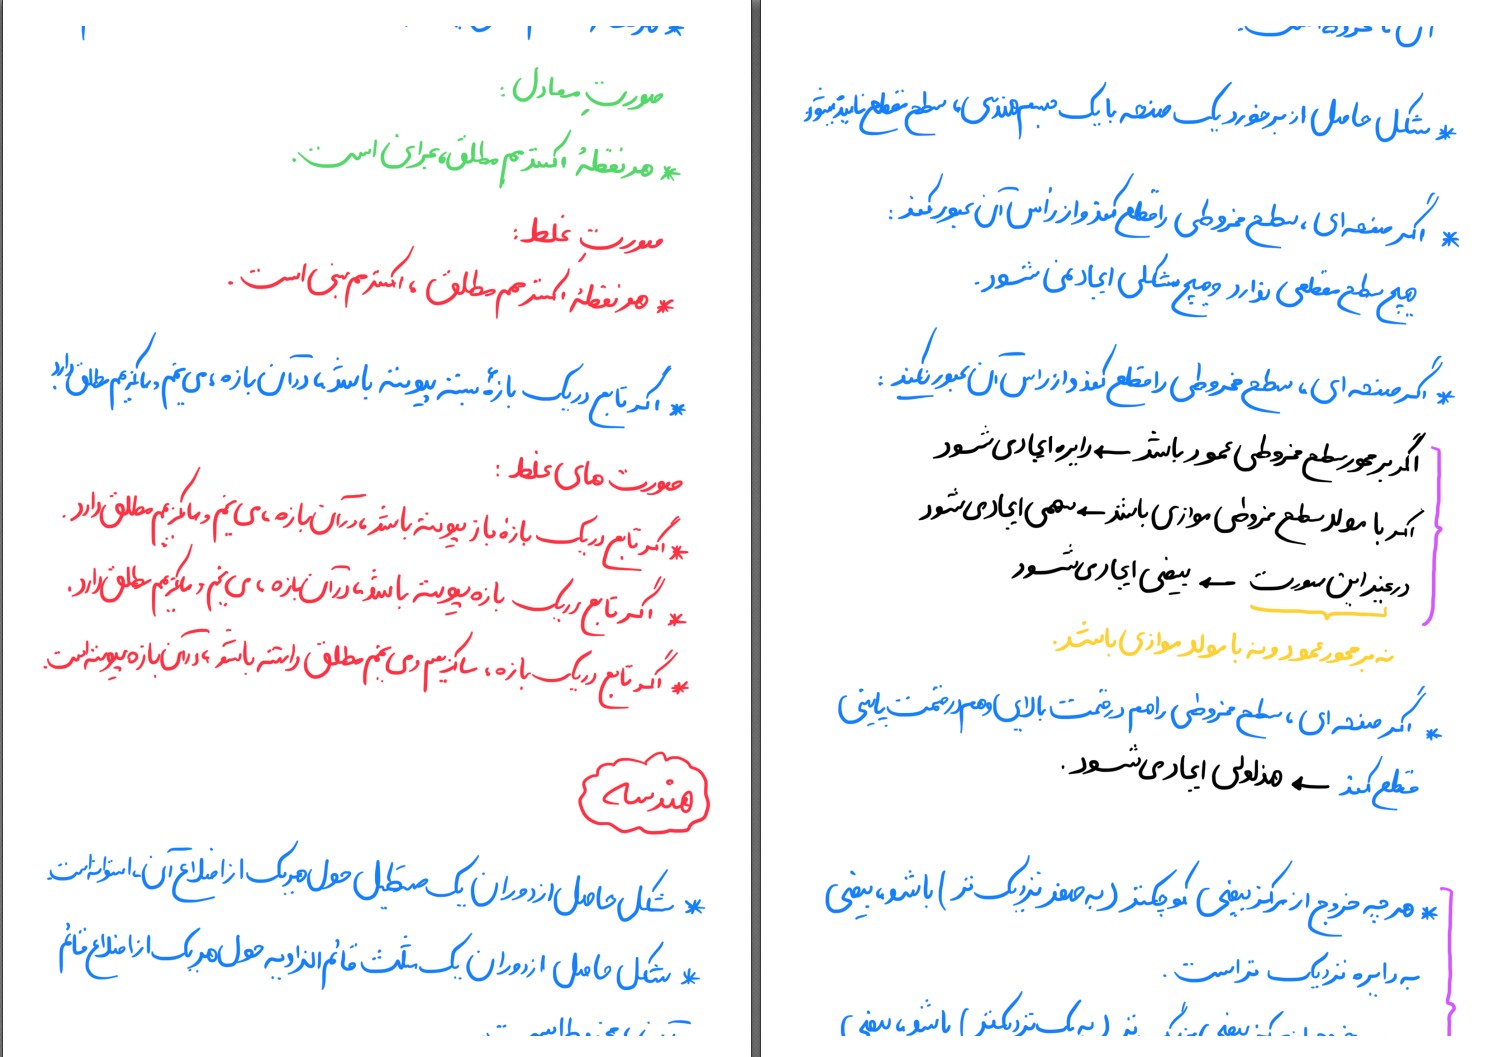 صورتِ معادل :
* هر نقطهٔ اکسترمم مطلق، بحرانی است.
صورتِ غلط :
* هر نقطهٔ اکسترمم مطلق ، اکسترمم نسبی است .
* اگر تابع در یک بازهٔ بسته پیوسته باشد ، در آن بازه ، می نیمم و ماکزیمم مطلق دارد
صورت های غلط :
* اگر تابع در یک بازهٔ باز پیوسته باشد ، در آن بازه ، می نیمم و ماکزیمم مطلق دارد .
* اگر تابع در یک بازه پیوسته باشد ، در آن بازه ، می نیمم و ماکزیمم مطلق دارد .
* اگر تابع در یک بازه ، ماکزیمم و می نیمم مطلق داشته باشد ، در آن بازه پیوسته است.
هندسه
* شکل حاصل از دوران یک مستطیل حول هریک از اضلاع آن ، استوانه است.
* شکل حاصل از دوران یک مثلث قائم الزاویه حول هریک از اضلاع قائم
* شکل حاصل از برخورد یک صفحه با یک جسم هندسی ، سطح مقطع نامیده میشود
* اگر صفحه ای ، سطح مخروطی را قطع کند و از رأس آن عبور کند :
هیچ سطح مقطعی ندارد و هیچ شکلی ایجاد نمی شود .
* اگر صفحه ای ، سطح مخروطی را قطع کند و از رأس آن عبور نکند :
اگر بر محور سطح مخروطی عمود باشد ← دایره ایجاد می شود
اگر با مولد سطح مخروطی موازی باشد ← سهمی ایجاد می شود
در غیر این صورت ← بیضی ایجاد می شود
نه بر محور عمود و نه با مولد موازی باشد.
* اگر صفحه ای ، سطح مخروطی را هم در قسمت بالایی و هم در قسمت پایینی
قطع کند ← هذلولی ایجاد می شود .
* هر چه خروج از مرکز بیضی کوچکتر ( به صفر نزدیک تر ) باشد ، بیضی
به دایره نزدیک تر است .